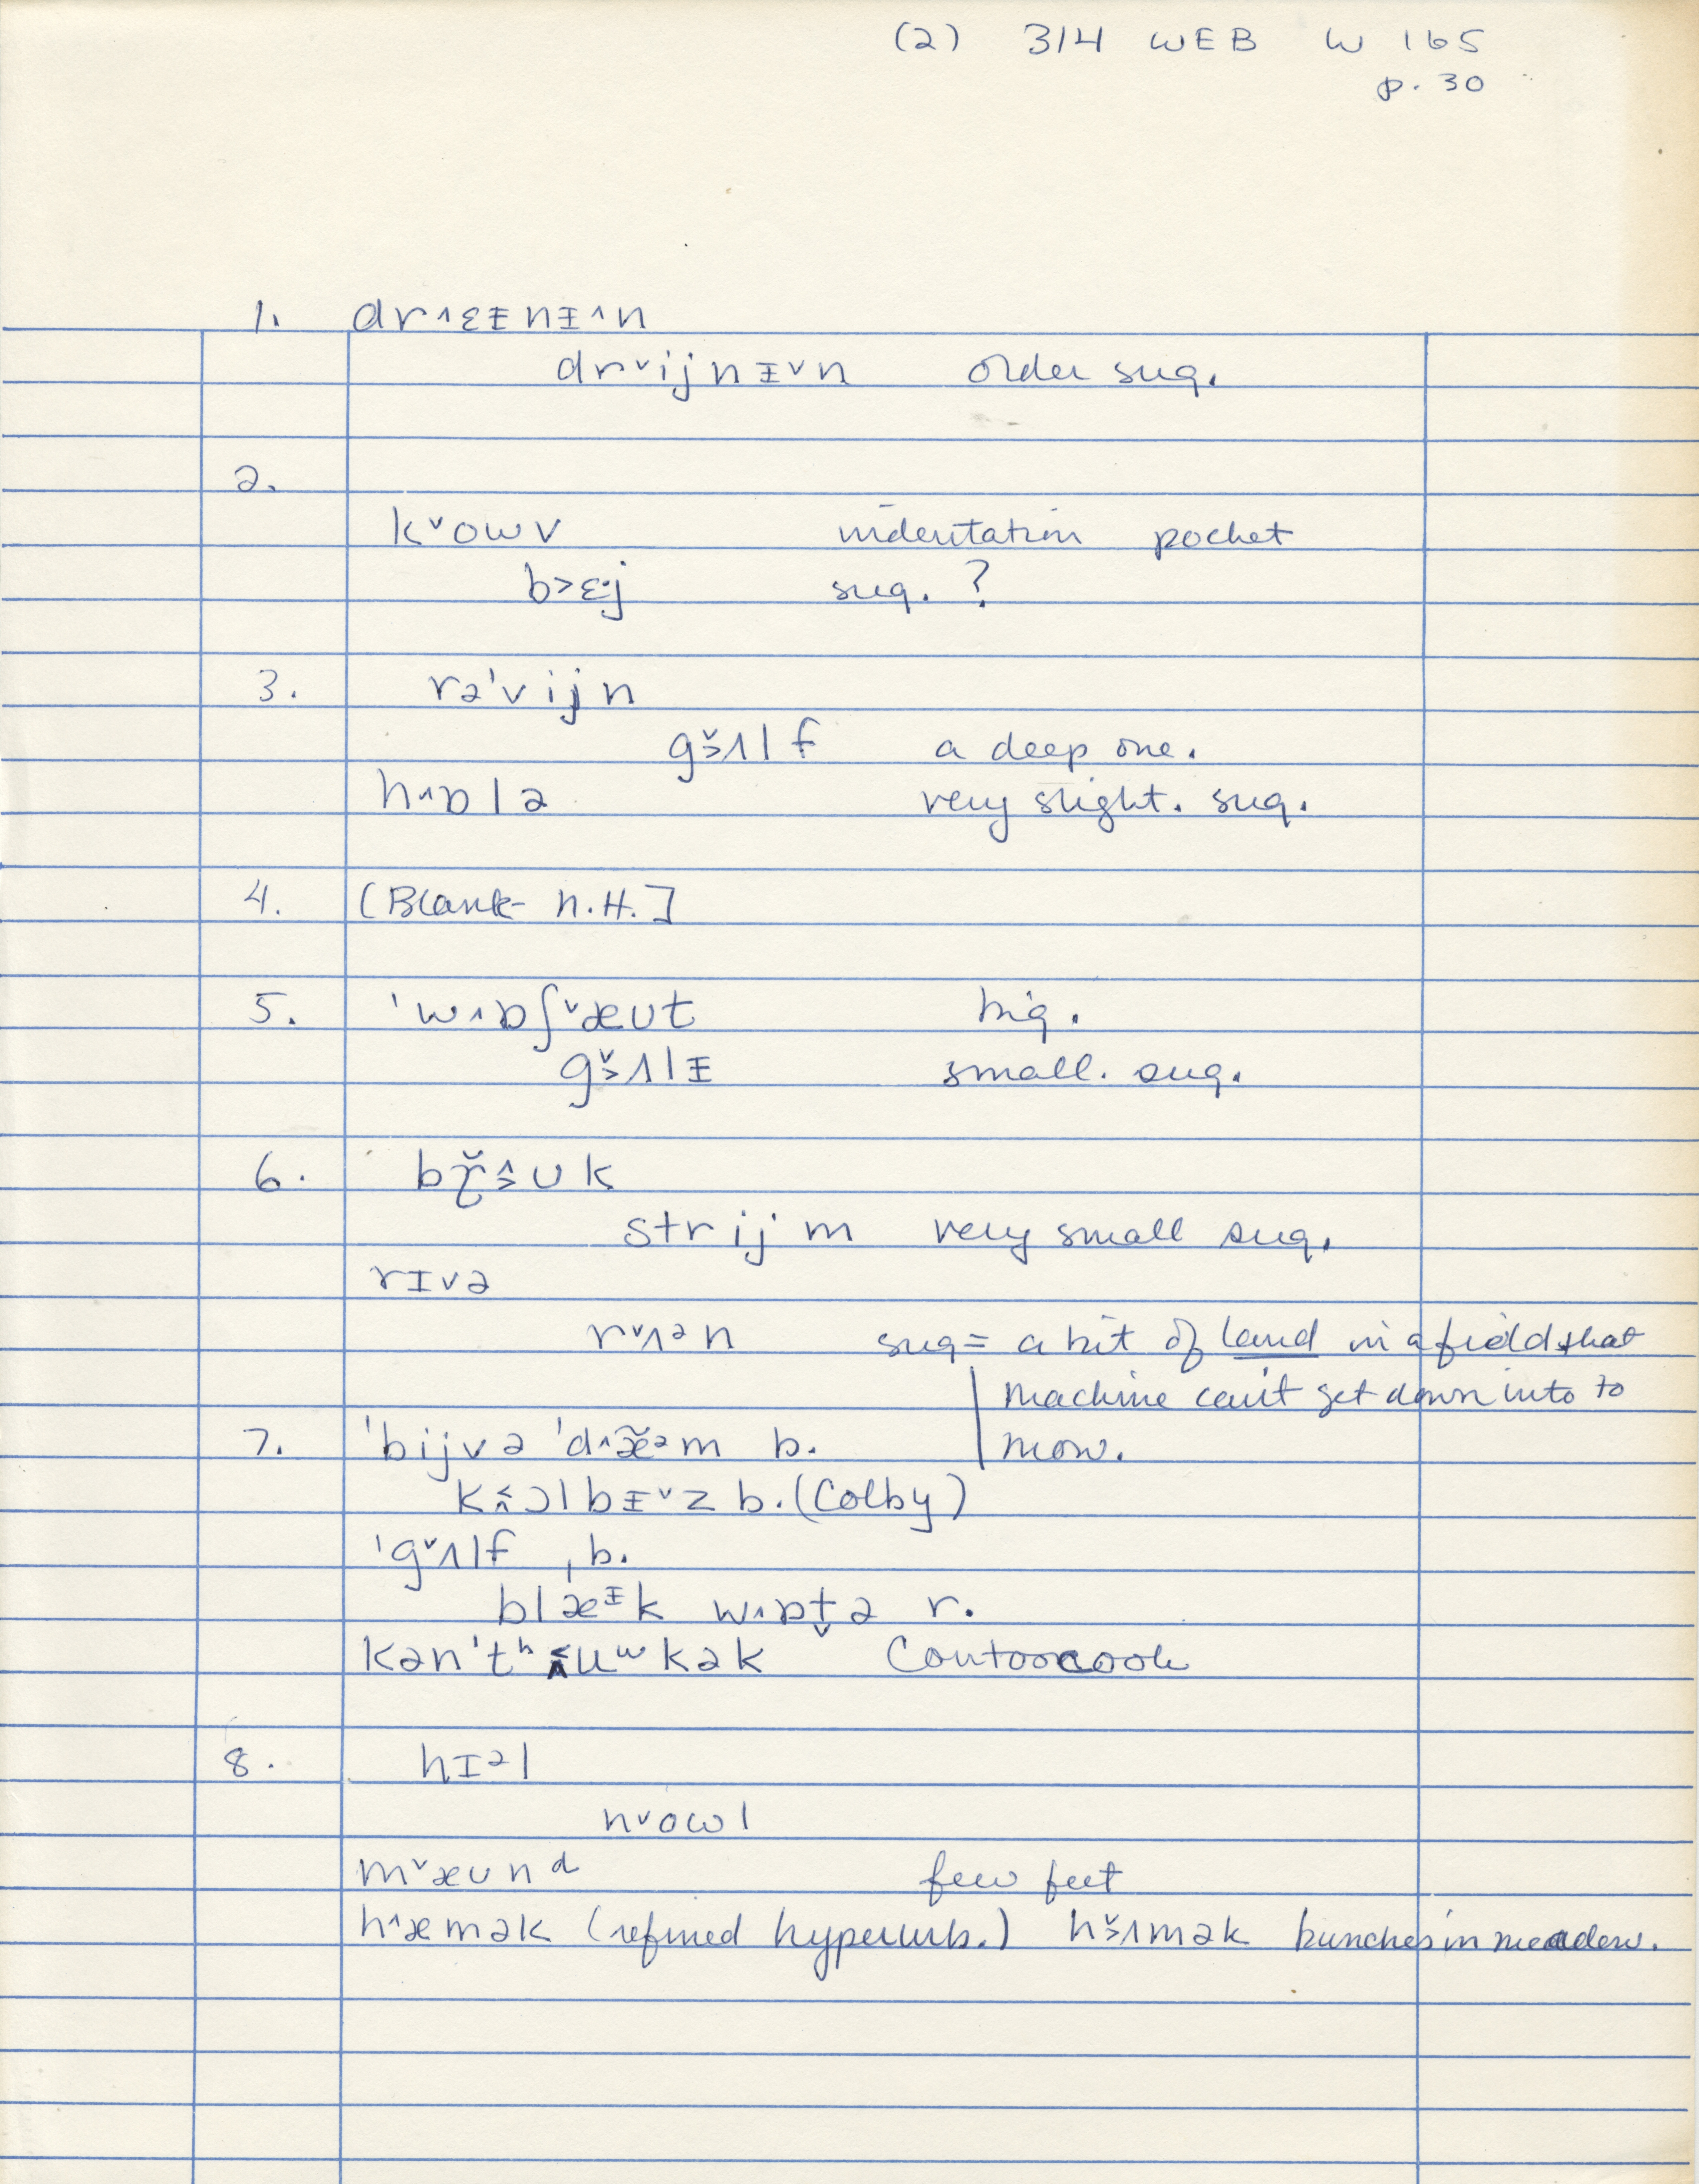 (2) 314 WEB W 165
p. 30
1. dr˄ɛᵻnᵻ˄n
dr˅ijnᵻ˅n older sug.
2.
k˅owv indentation pocket
b>ɛ·j sug. ?
3. rə'vijn
g˅>ʌlf a deep one.
h˄ɒlə very slight. sug.
4. [Blank N.H.]
5. 'w˄ɒʃ˅æʊt big.
g˅>ʌlᵻ small. sug.
6. br̥̆˄>ʊk
strijm very small sug.
rɪvə
r˅ʌᵊn sug = a bit of land in a field that
machine can't get down into to
7. 'bijvə 'd˄æ̃˅ᵊm b. mow.
k<˄ɔlbᵻ˅z b. (Colby)
'g˅ʌlf ˌb.
blæᵻk w˄ɒt̬ə r.
kən'tʰ<˄uʷkək Contoocook
8. hɪᵊl
n˅owl
m˅æʊnᵈ few feet
h˄æmək (refined hyperurb.) h˅>ʌmək bunches in meadow.